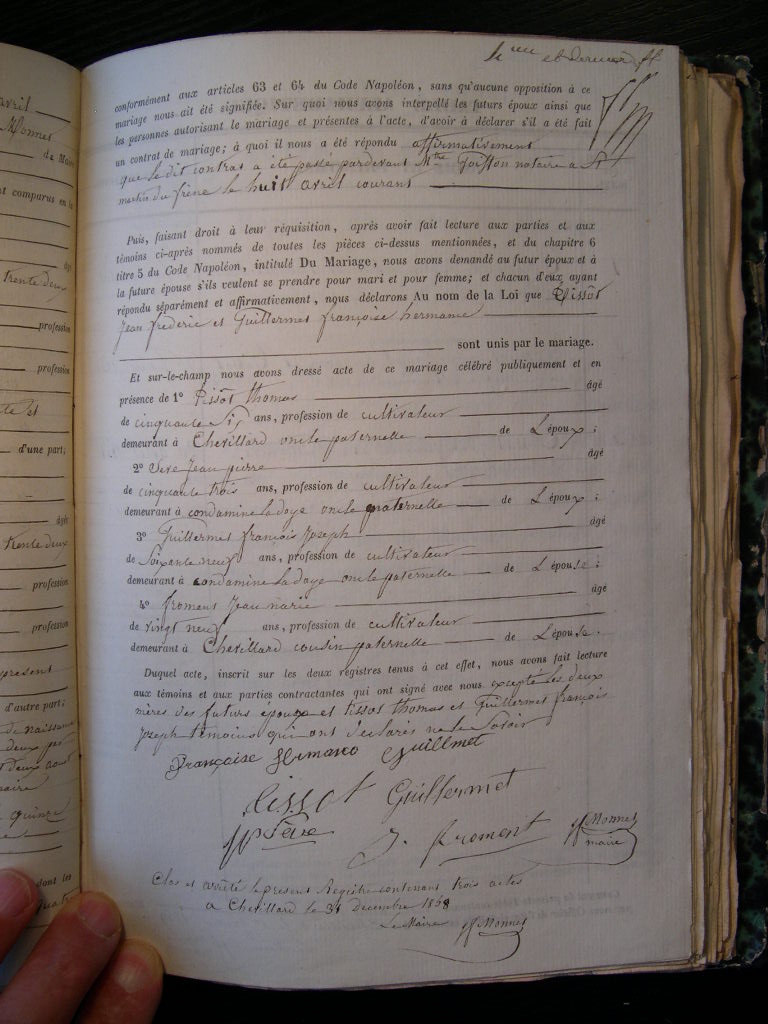 4eme et dernier ff
conformément aux articles 63 et 64 du Code Napoléon, sans qu'aucune opposition à ce
mariage nous ait été signifiée. Sur quoi nous avons interpellé les futurs époux ainsi que
les personnes autorisant le mariage et présentes à l'acte, d'avoir à déclarer s'il a été fait
un contrat de mariage; à quoi il nous a été répondu affirmativement
que le dit contras a été passé pardevant Mtre Goiffon notaire a St
martin du frêne le huit avril courant
Puis, faisant droit à leur réquisition, après avoir fait lecture aux parties et aux
témoins ci-après nommés de toutes les pièces ci-dessus mentionnées, et du chapitre 6
titre 5 du Code Napoléon, intitulé Du Mariage, nous avons demandé au futur époux et à
la future épouse s'ils veulent se prendre pour mari et pour femme; et chacun d'eux ayant
répondu séparément et affirmativement, nous déclarons Au nom de la Loi que Tissot
Jean frederic et Guillermet françoise hermance
sont unis par le mariage.
Et sur-le-champ nous avons dressé acte de ce mariage célébré publiquement et en
présence de 1° Tissot thomas âgé
de cinquante six ans, profession de cultivateur
demeurant à Chevillard oncle paternelle de L'époux;
2° Seve Jean pierre âgé
de cinquante trois ans, profession de cultivateur
demeurant à condamine ladoye oncle materelle de L'époux;
3° Guillermet françois Joseph âgé
de Soixante neuf ans, profession de cultivateur
demeurant à condamine Ladoye oncle paternelle de L'épouse;
4° froment Jean marie âgé
de vingt neuf ans, profession de cultivateur
demeurant à Chevillard cousin paternelle de L'épouse.
Duquel acte, inscrit sur les deux registres tenus à cet effet, nous avons fait lecture
aux témoins et aux parties contractantes qui ont signé avec nous excepté les deux
mères des futurs époux et tissot thomas et Guillermet françois
Joseph témoins qui ont déclarés ne le Savoir
Françoise Hermance Guillmet
tissot Guillermet
JP Seve J. froment Monnet
maire
Clos et arrêté le present Registre contenant trois actes
a Chevillard le 31 decembre 1858
Le Maire Monnet